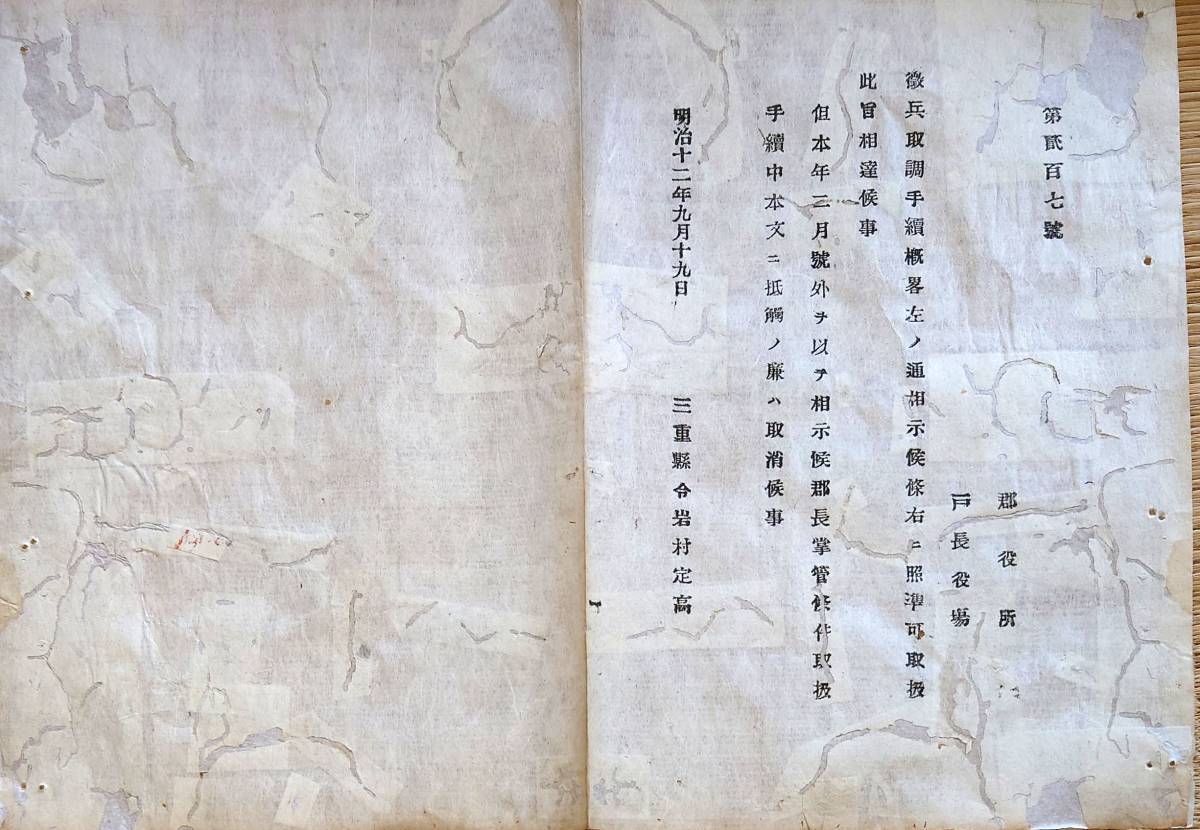 第貳百七號
郡役所
戸長役場
徵兵取調手續概畧左ノ通相示候條右ニ照準可取扱
此旨相達候事
但本年三月號外ヲ以テ相示候郡長掌管條件取扱
手續中本文ニ抵觸ノ廉ハ取消候事
明治十二年九月十九日
三重縣令岩村定高